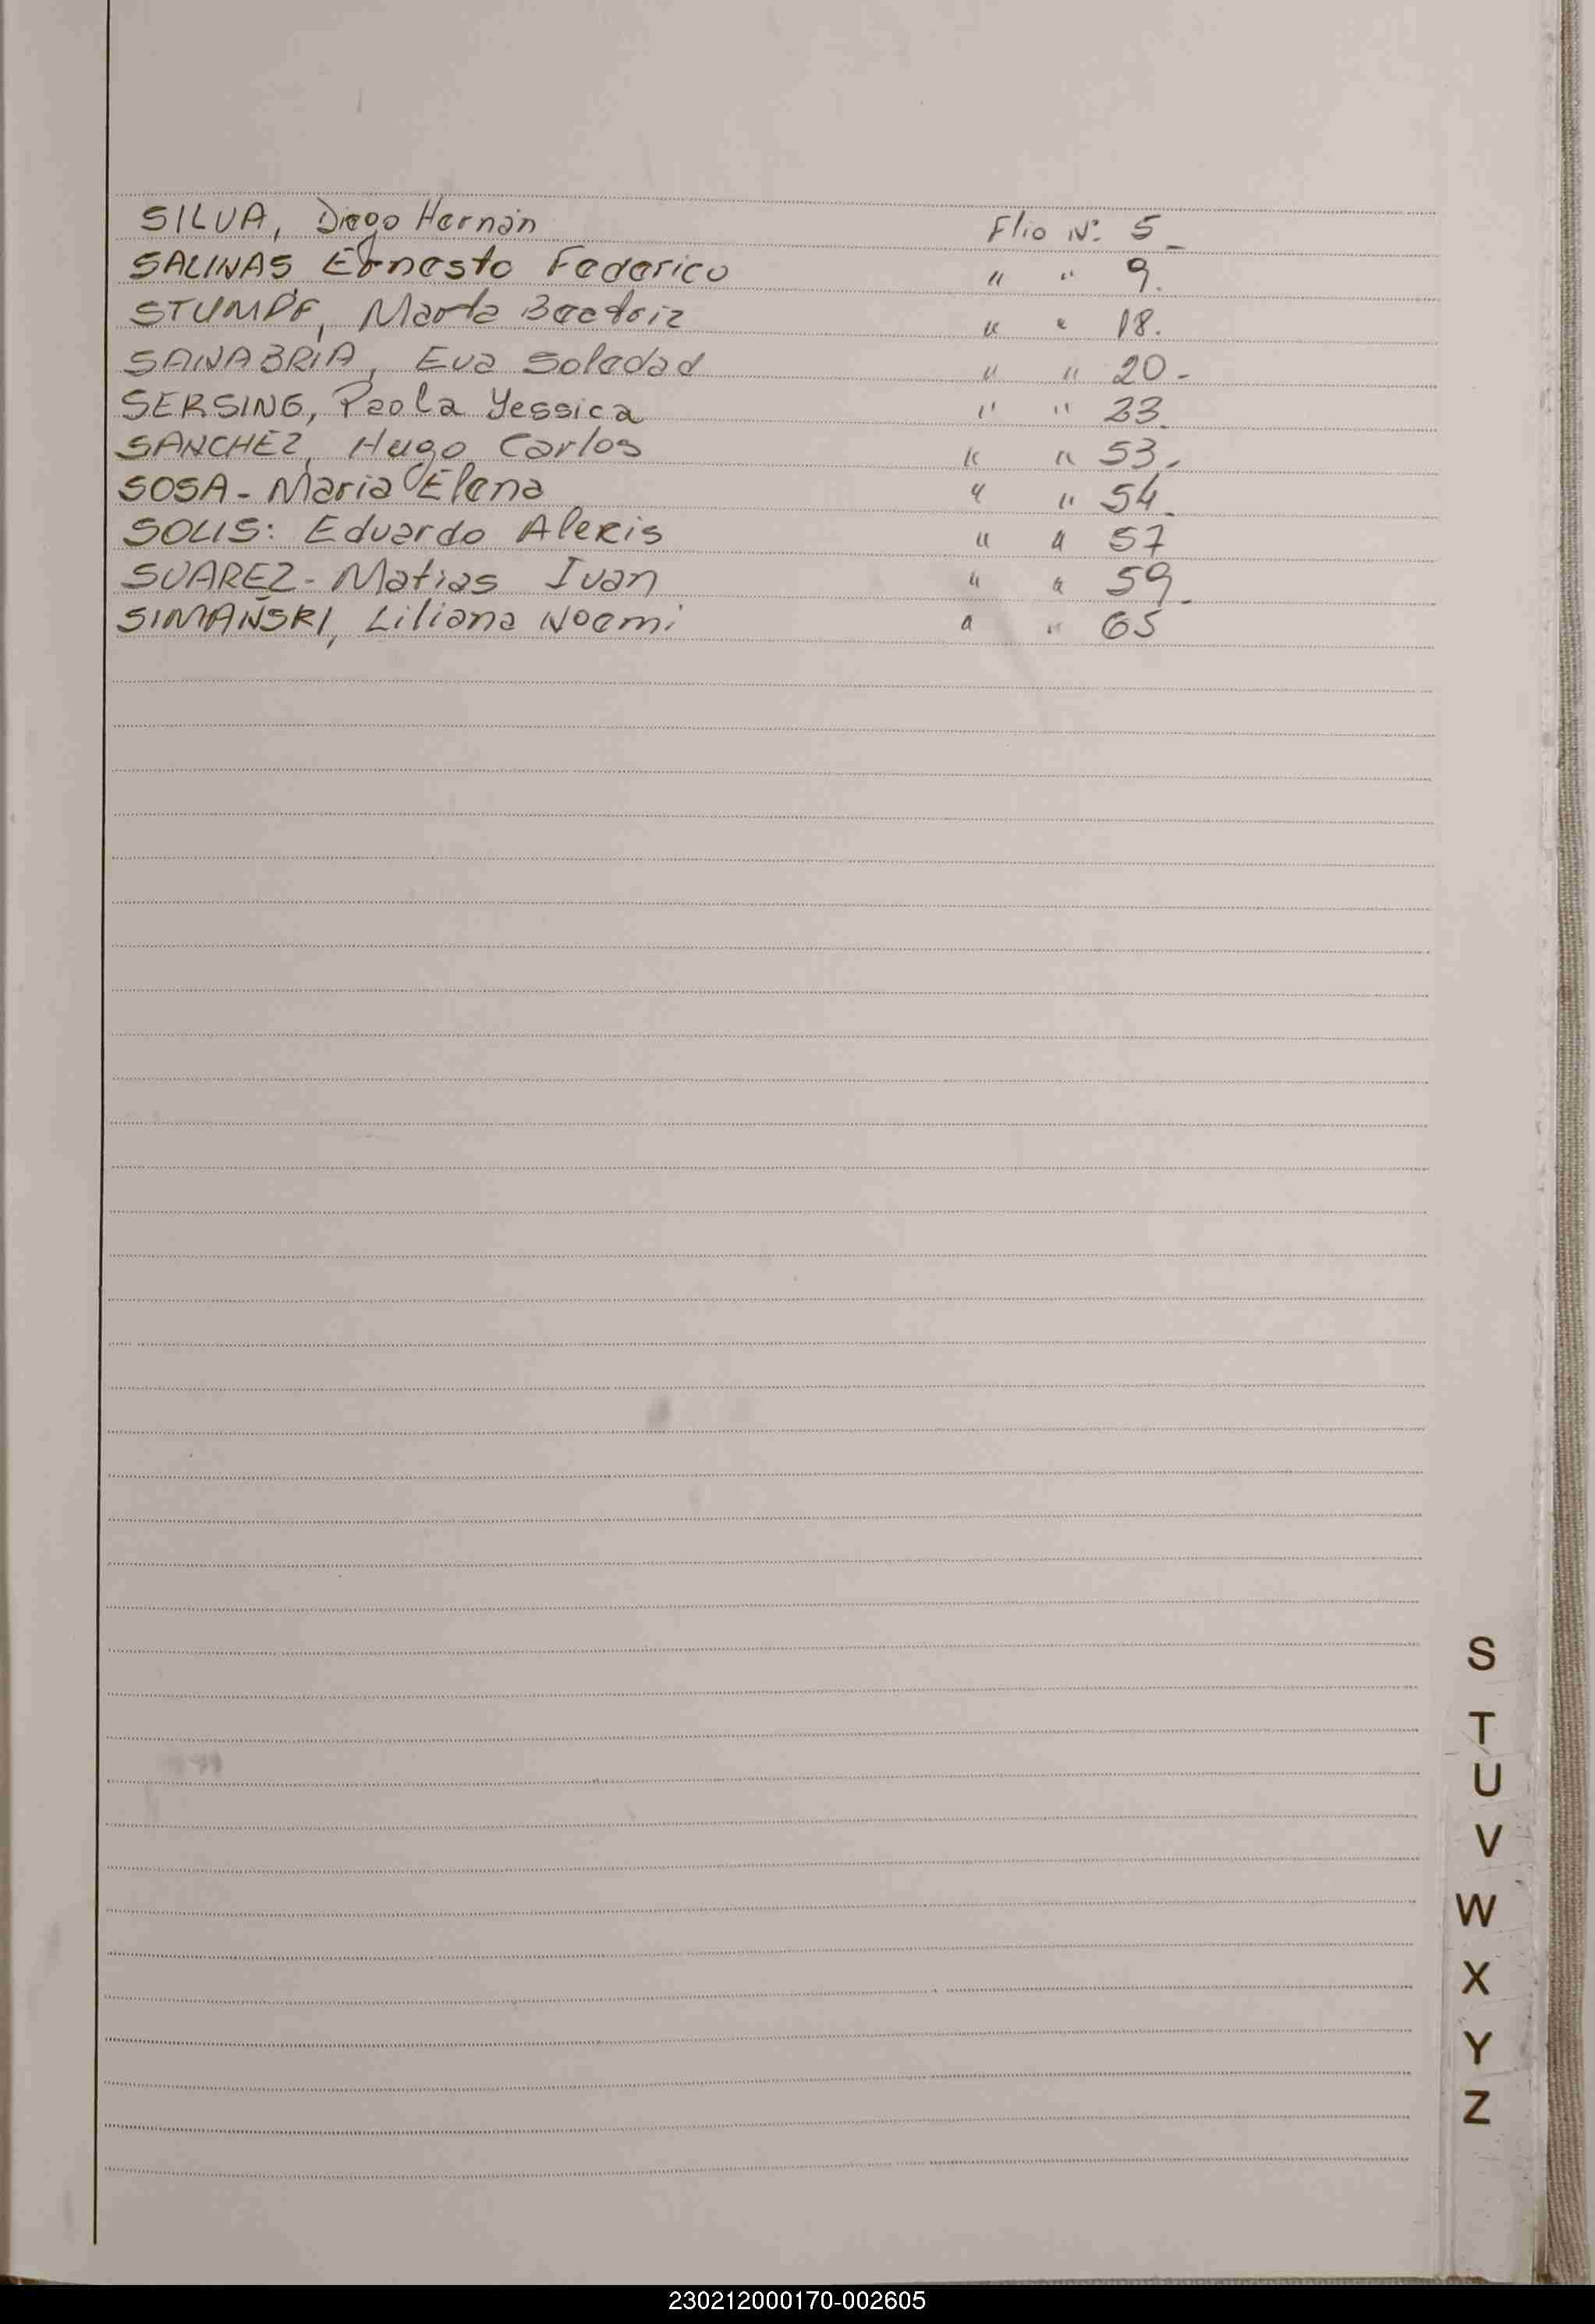 SILVA, Diego Hernán Flio Nº 5_
SALINAS Ernesto Federico " " 9.
STUMPF, Marta Beatriz " " 18.
SANABRIA, Eva Soledad " " 20-
SERSING, Paola Yessica " " 23.
SANCHEZ, Hugo Carlos " " 53.
SOSA- Maria Elena " " 54.
SOLIS: Eduardo Alexis " " 57
SUAREZ- Matias Ivan " " 59_
SIMAÑSKI, Liliana Noemi " " 65
S
T
U
V
W
X
Y
Z
230212000170-002605